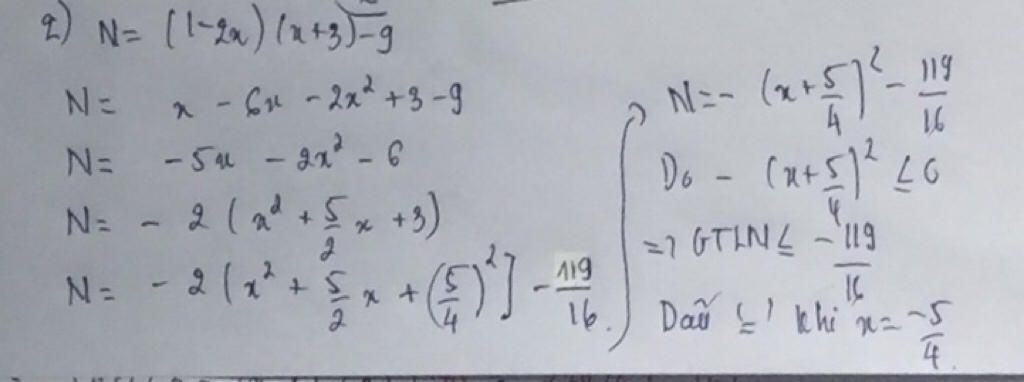 2) N = (1-2x)(x+3)-9
N = x - 6x - 2x² + 3 - 9
N = -5x - 2x² - 6
N = - 2 (x² + 5/2 x + 3)
N = - 2 (x² + 5/2 x + (5/4)²] - 119/16.
N = - (x + 5/4)² - 119/16
Do - (x + 5/4)² ≤ 0
=> GTLN ≤ -119/16
Dấu '=' khi x = -5/4.